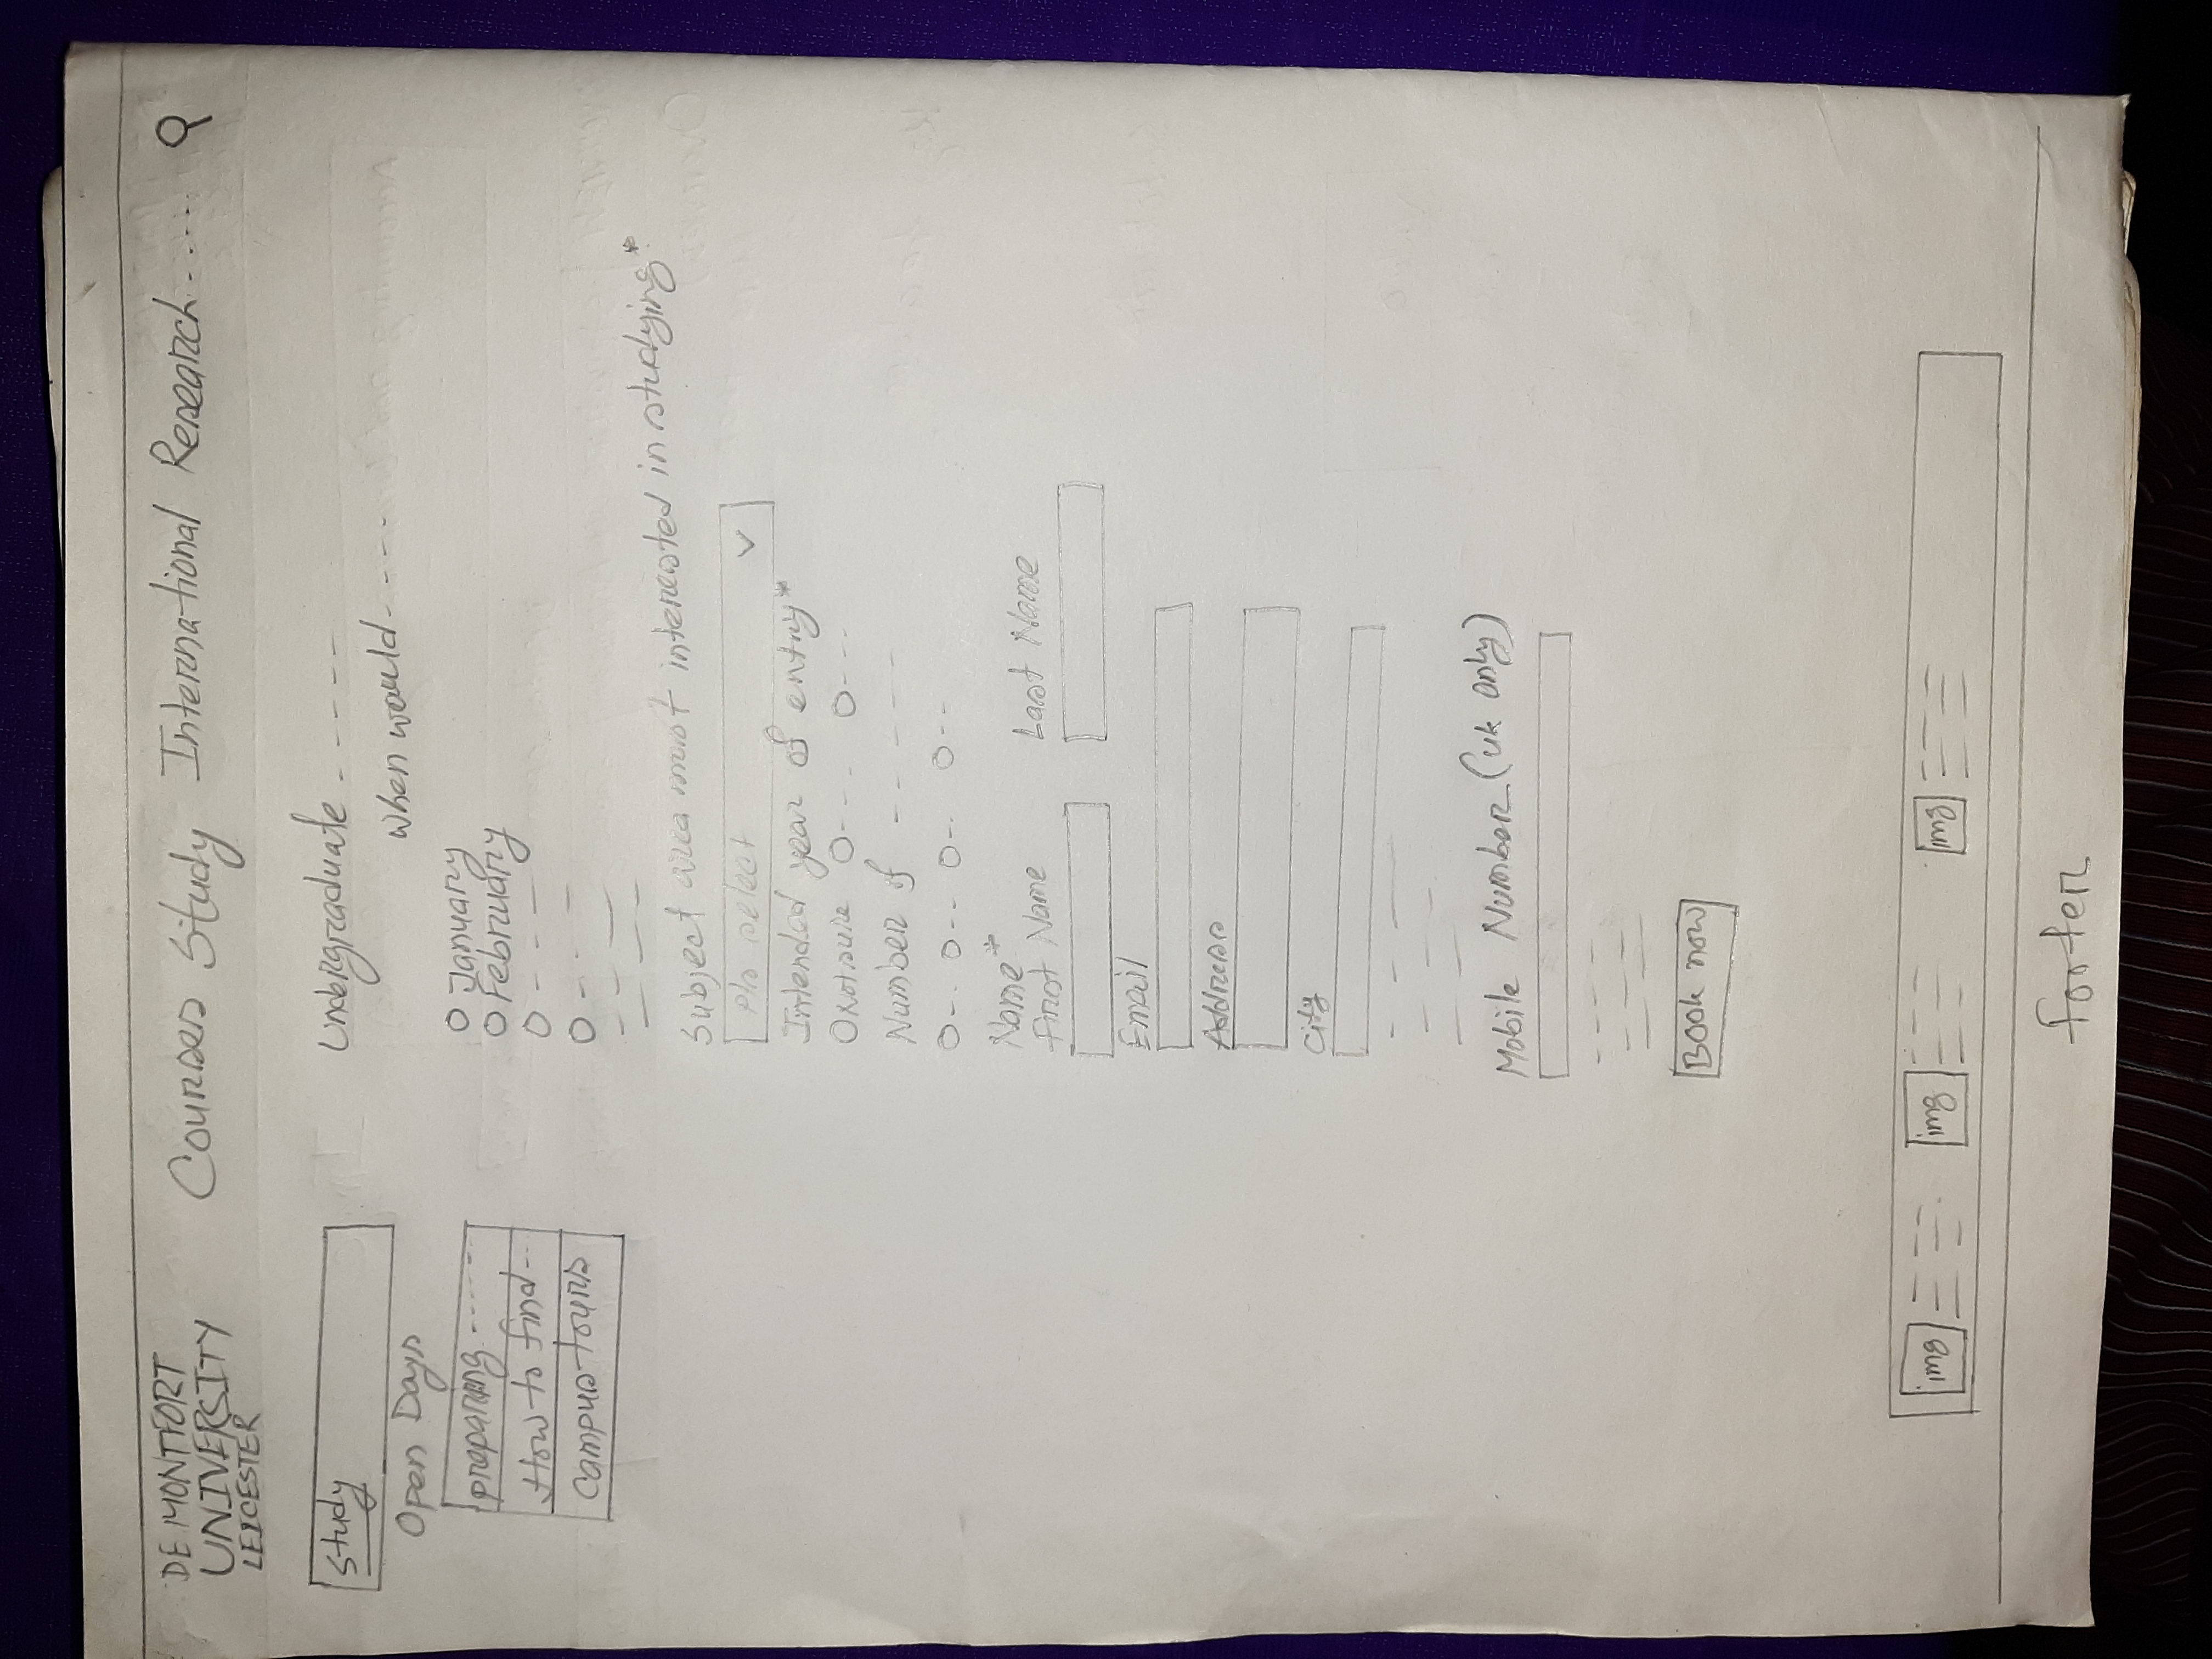 DE MONTFORT
UNIVERSITY
LEICESTER
Courses Study International Research..... 
Study
Open Days
preparing ------
How to find--
Campus tours
Undergraduate -----
When would----
January
February
Subject area most interested in studying*
Pls select
Intended year of entry*
Not sure
Number of -----
Name*
First Name Last Name
Email
Address
City
Mobile Number (uk only)
Book now
img img img
footer